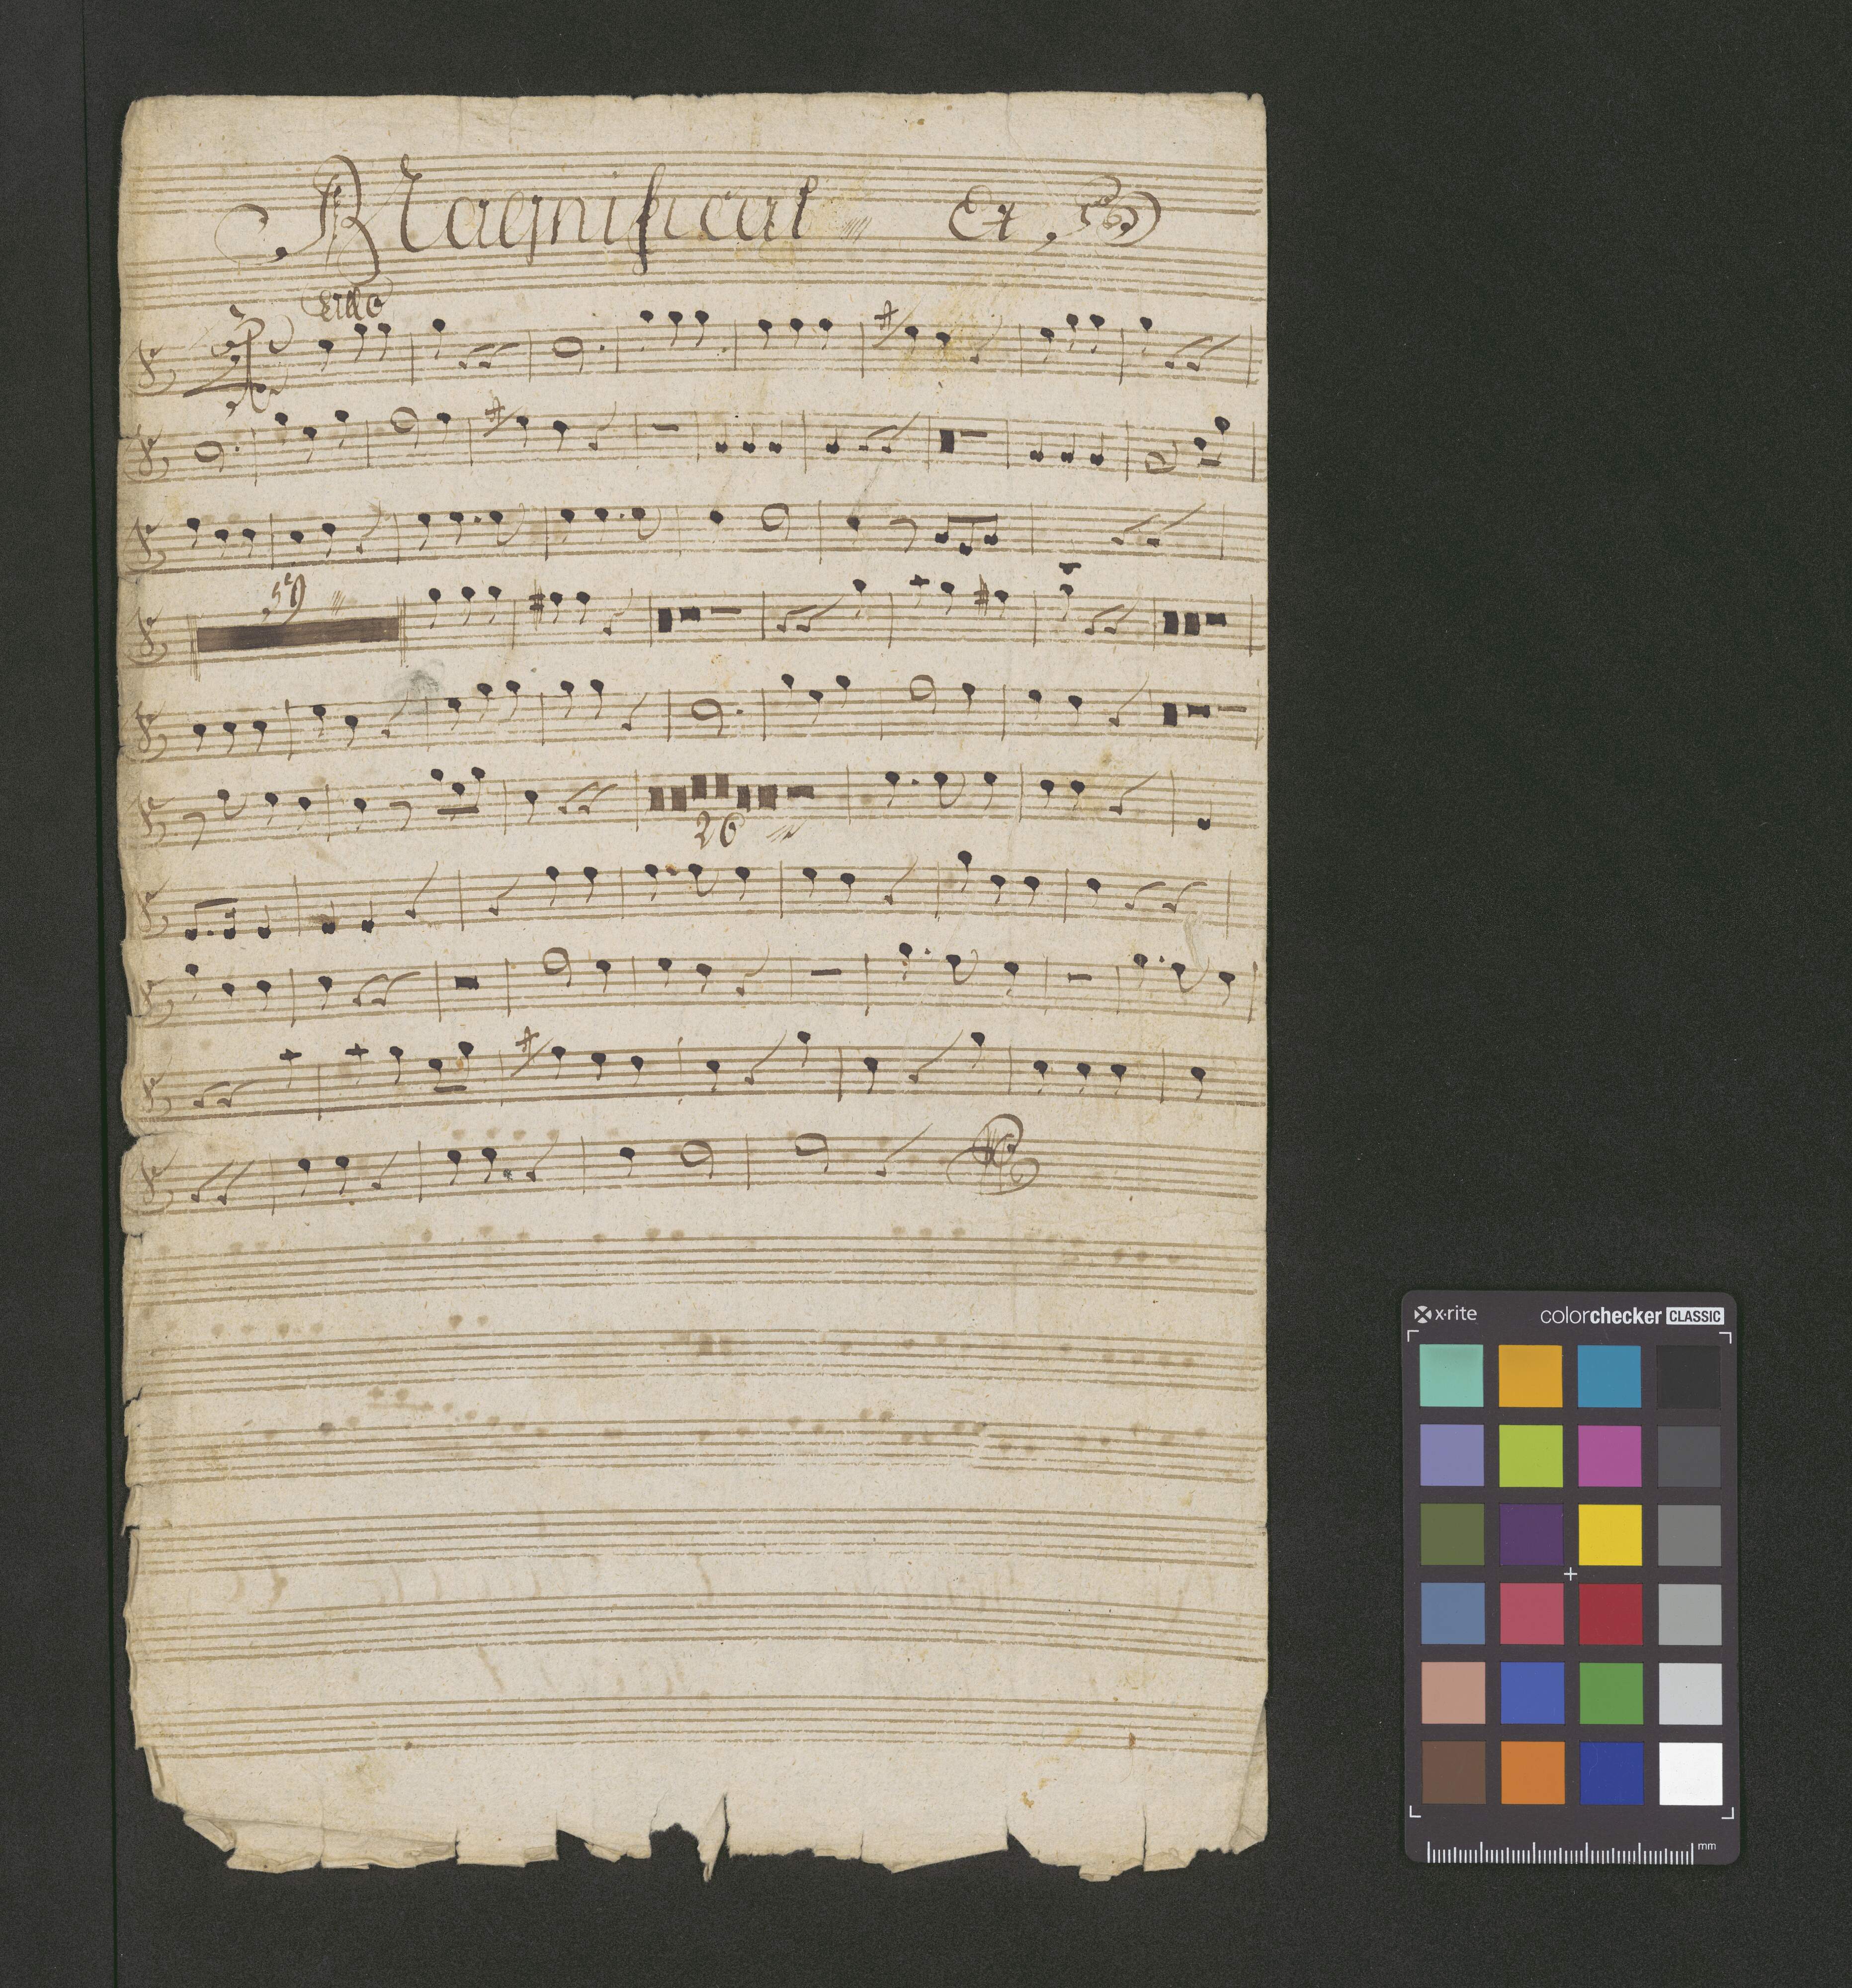 Magnificat Ex
59
26
x·rite colorchecker CLASSIC
mm